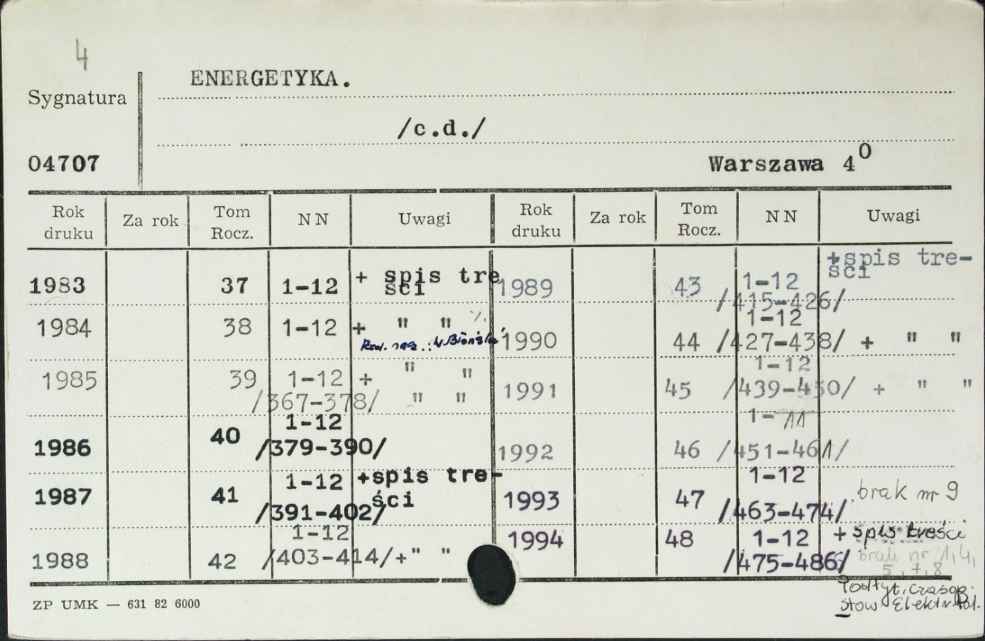 4
ENERGETYKA.
Sygnatura
/c.d./
04707 Warszawa 4⁰
Rok druku Za rok Tom Rocz. NN Uwagi Rok druku Za rok Tom Rocz. NN Uwagi
1983 37 1-12 + spis treści
1984 38 1-12 + " " %
1985 39 1-12 /367-378/ + " " " "
1986 40 1-12 /379-390/
1987 41 1-12 /391-402/ +spis tre-ści
1988 42 1-12 /403-414/+" "
1989 43 1-12 /415-426/ +spis tre-ści
1990 44 1-12 /427-438/ + " "
1991 45 1-12 /439-450/ + " "
1992 46 1-11 /451-461/
1993 47 1-12 /463-474/ brak nr 9
1994 48 1-12 /475-486/ + spis treści
brak nr 1,4,
5,7,8
Podtyt. czasop.
Stow Elektr
ZP UMK — 631 82 6000